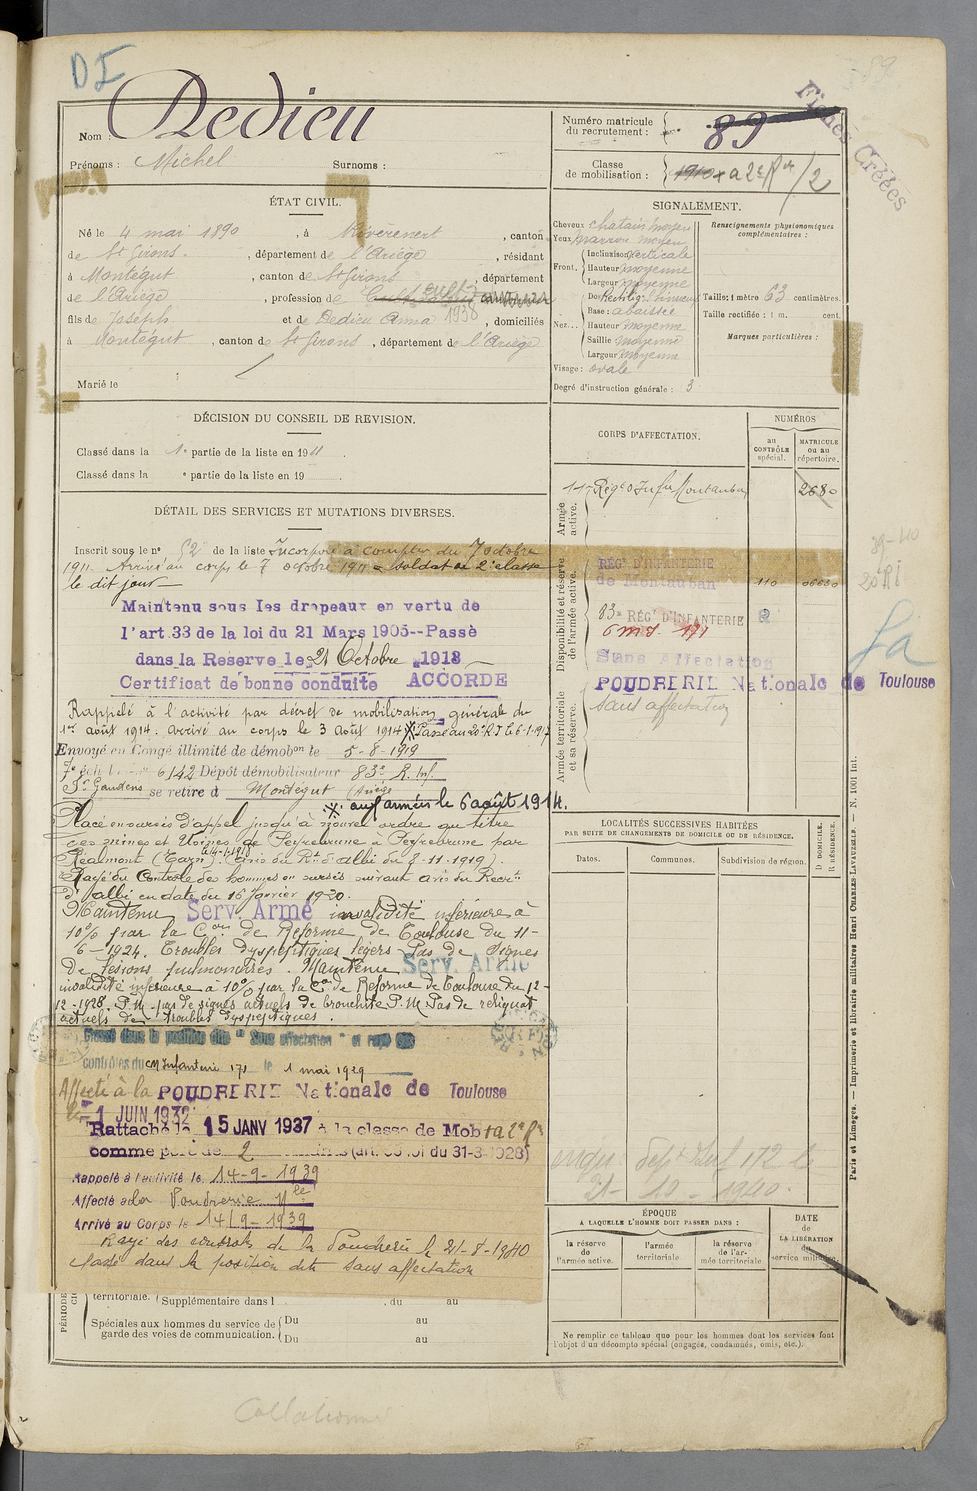 DI
89
Nom : Dedieu
Prénoms : Michel Surnoms :
Numéro matricule
du recrutement : 89
Classe
de mobilisation : 1910 a 2e Rve /2
Fiches Créées
ÉTAT CIVIL.
Né le 4 mai 1890, à Rivèrenert, canton
de St Girons, département de l'Ariège, résidant
à Montégut, canton de St Girons, département
de l'Ariège, profession de Cult
fils de Joseph et de Dedieu Anna 1938, domiciliés
à Montégut, canton de St Girons, département de l'Ariège
Marié le
SIGNALEMENT.
Cheveux chatain moyen
Yeux marron moyen
Front. Inclinaison verticale
Hauteur moyenne
Largeur moyenne
Nez... Dos Rectilig. Sinueux
Base : abaissée
Hauteur moyenne
Saillie moyenne
Largeur moyenne
Visage : ovale
Renseignements physionomiques
complémentaires :
Taille : 1 mètre 63 centimètres.
Taille rectifiée : 1 m. cent.
Marques particulières :
Degré d'instruction générale : 3
DÉCISION DU CONSEIL DE REVISION.
Classé dans la 1e partie de la liste en 1911.
Classé dans la e partie de la liste en 19
DÉTAIL DES SERVICES ET MUTATIONS DIVERSES.
Inscrit sous le no 52 de la liste Incorporé à compter du 7 octobre
1911. Arrivé au corps le 7 octobre 1911 soldat de 2e classe
le dit jour
Maintenu sous les drapeaux en vertu de
l'art.33 de la loi du 21 Mars 1905--Passé
dans la Reserve le 21 Octobre 1913
Certificat de bonne conduite ACCORDE
Rappelé à l'activité par décret de mobilisation générale du
1er août 1914. Arrivé au corps le 3 Août 1914 Passé au 20e R I le 6-1-1917
Envoyé en Congé illimité de démobon le 5-8-1919
6142 Dépôt démobilisateur 83e R. Inf.
St Gaudens se retire à Montégut (Ariège
aux armées le 6 août 1914.
Placé en sursis d'appel jusqu'à nouvel ordre au titre
des mines et Usines de Peyrebrune à Peyrebrune par
Réalmont (Tarn). (Avis du Rt d'Albi du 8-11-1919).
Rayé du Contrôle des hommes en sursis suivant avis du Recrt
d'Albi en date du 16 janvier 1920.
Maintenu Serv. Armé invalidité inférieure à
10% par la Con de Réforme de Toulouse du 11-
6-1924. Troubles dyspeptiques légers Pas de signes
de lésions pulmonaires. Maintenu Serv. Armé
invalidité inférieure à 10% par la Con de Réforme de Toulouse du 12-
12-1928. P.M. pas de signes actuels de bronchite P.M. Pas de reliquat
actuels de troubles dyspeptiques.
Classé dans la position dite "Sans affectation" et rayé des
contrôles du cm Infanterie 171 le 1 mai 1929
Affecté à la POUDRERIE Nationale de Toulouse
le 1 JUIN 1932
Rattaché le 15 JANV 1937 à la classe de Mob
comme père de 2 enfants (art. 58 loi du 31-3-1928)
Rappelé à l'activité le 14-9-1939
Affecté à la Poudrerie Nle
Arrivé au Corps le 14-9-1939
Rayé des contrôles de la Poudrerie le 21-8-1940
Classé dans la position dite sans affectation
territoriale. Supplémentaire dans l , du au
Spéciales aux hommes du service de
garde des voies de communication.
Du au
Du au
CORPS D'AFFECTATION.
NUMÉROS
au
CONTRÔLE
spécial.
MATRICULE
ou au
répertoire.
Armée
active.
Disponibilité et réserve
de l'armée active.
Armée territoriale
et sa réserve.
11e Régt d'Infie Montauban 2680
RÉGt D'INFANTERIE
de Montauban 110
83e RÉGt D'INFANTERIE
c m d. 171
Sans Affectation
POUDRERIE Nationale de Toulouse
sans affectation
20e RI
LOCALITÉS SUCCESSIVES HABITÉES
PAR SUITE DE CHANGEMENTS DE DOMICILE OU DE RÉSIDENCE.
Dates. Communes. Subdivision de région.
D. DOMICILE.
R. RÉSIDENCE.
21-10-1940.
ÉPOQUE
A LAQUELLE L'HOMME DOIT PASSER DANS :
la réserve
de
l'armée active.
l'armée
territoriale.
la réserve
de l'ar-
mée territoriale
DATE
de
LA LIBÉRATION
du
service militaire.
Ne remplir ce tableau que pour les hommes dont les services font
l'objet d'un décompte spécial (engagés, condamnés, omis, etc.).
Paris et Limoges. — Imprimerie et librairie militaires Henri CHARLES-LAVAUZELLE. — N. 1001 int.
Collationné